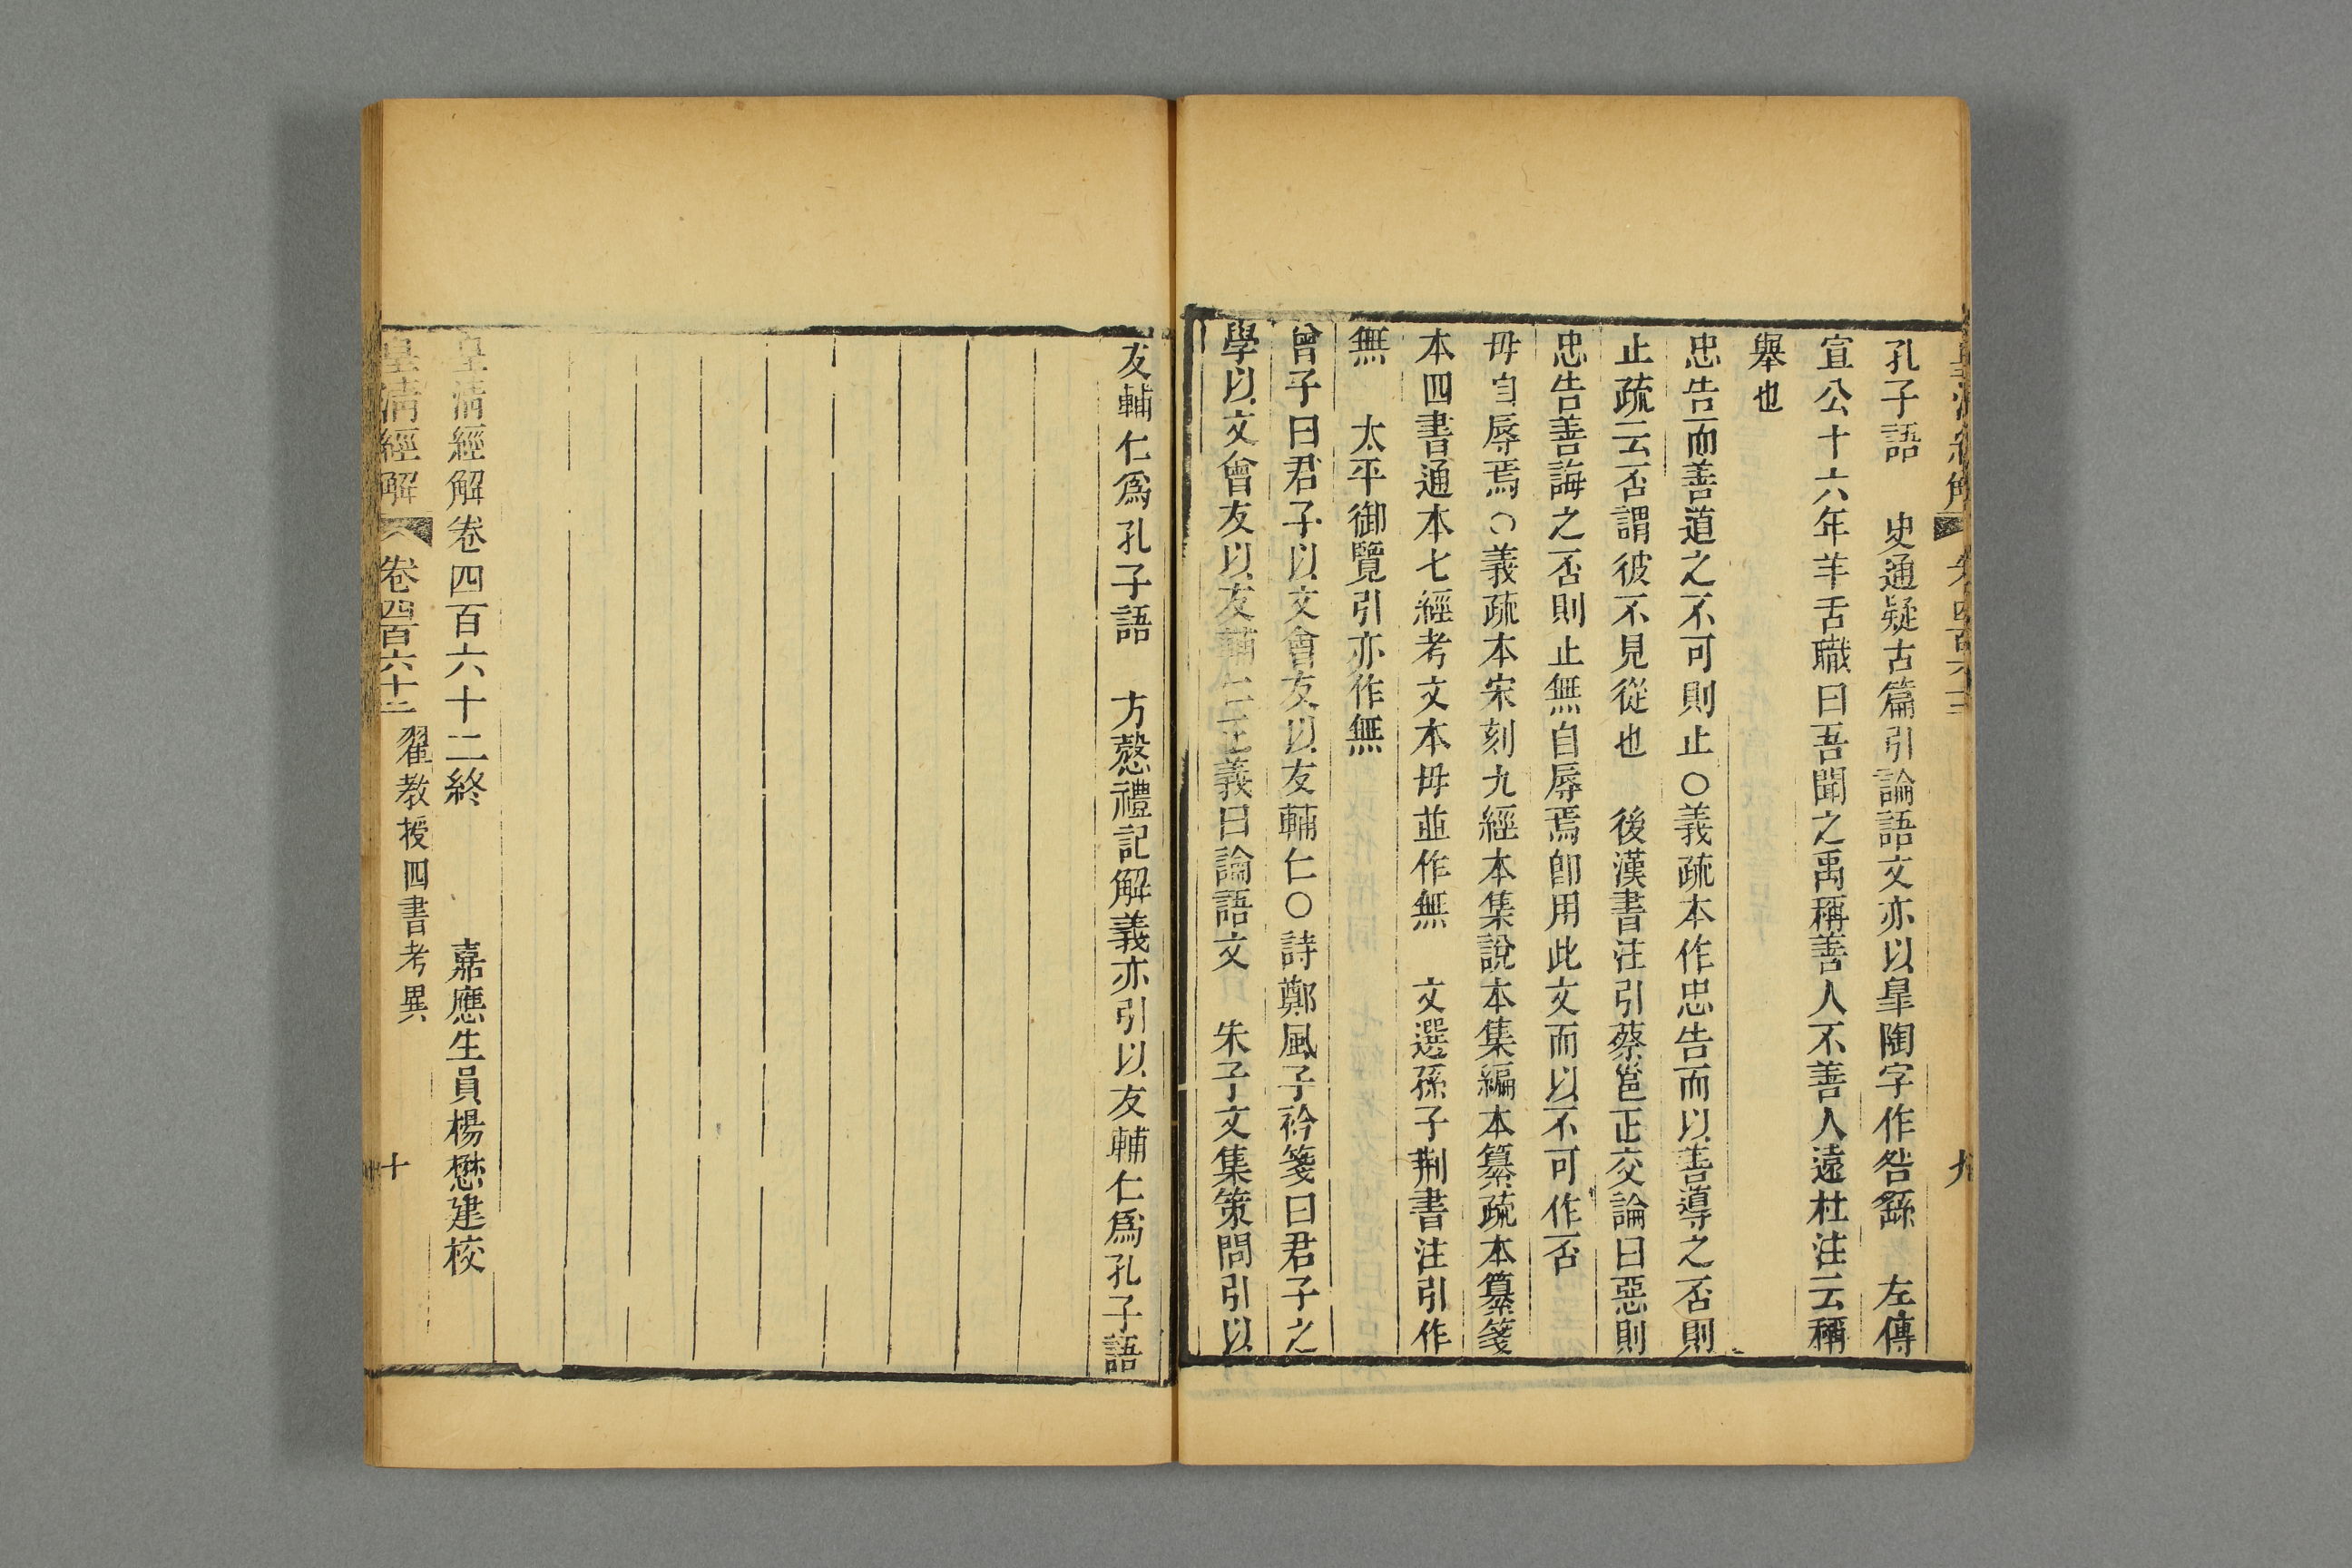 孔子語　史通疑古篇引論語文亦以臯陶字作咎繇　左傳
宣公十六年羊舌職曰吾聞之禹稱善人不善人遠杜注云稱
舉也
忠告而善道之不可則止○義疏本作忠告而以善導之否則
止疏云否謂彼不見從也　後漢書注引蔡邕正交論曰惡則
忠告善誨之否則止無自辱焉卽用此文而以不可作否
毋自辱焉○義疏本宋刻九經本集說本集編本纂疏本纂箋
本四書通本七經考文本毋並作無　文選孫子荆書注引作
無　太平御覽引亦作無
曾子曰君子以文會友以友輔仁○詩鄭風子衿箋曰君子之
學以文會友以友輔仁正義曰論語文　朱子文集策問引以
友輔仁爲孔子語　方慤禮記解義亦引以友輔仁爲孔子語
皇清經解卷四百六十二終　嘉應生員楊懋建校
皇清經解　卷四百六十二　翟教授四書考異　十